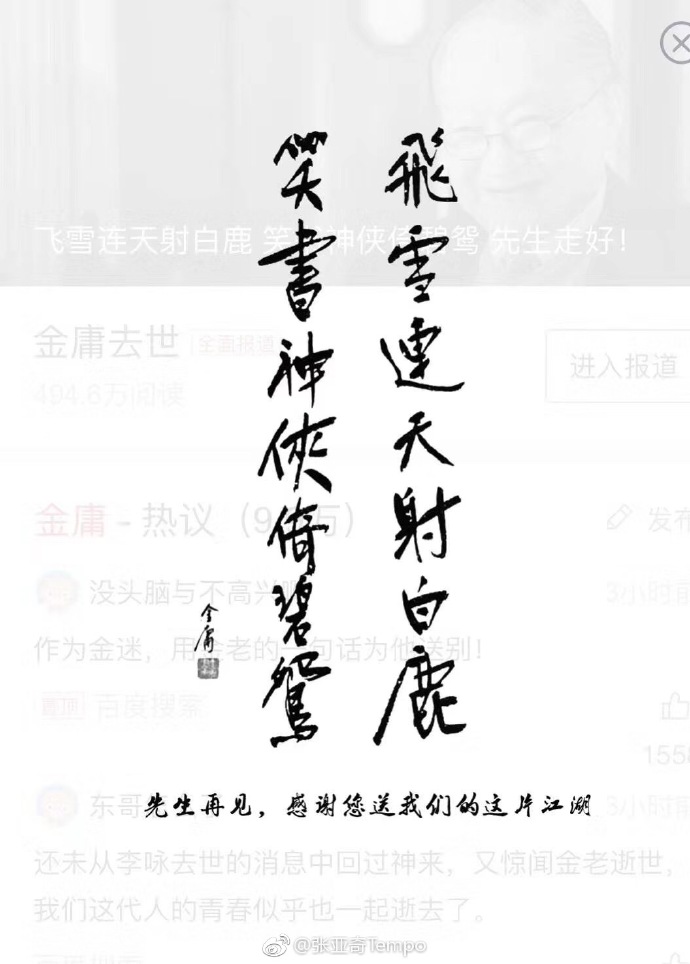 飛雪連天射白鹿
笑書神俠倚碧鴛
金庸
先生再见，感谢您送我们的这片江湖
飞雪连天射白鹿 笑书神侠倚碧鸳 先生走好！
金庸去世 全面报道
494.6万阅读
进入报道
金庸 - 热议（9 万）
发布
没头脑与不高兴啊
3小时前
作为金迷，用金老的一句话为他送别！
置顶 百度搜索
1558
东哥
3小时前
还未从李咏去世的消息中回过神来，又惊闻金老逝世，
我们这代人的青春似乎也一起逝去了。
@张亚奇Tempo